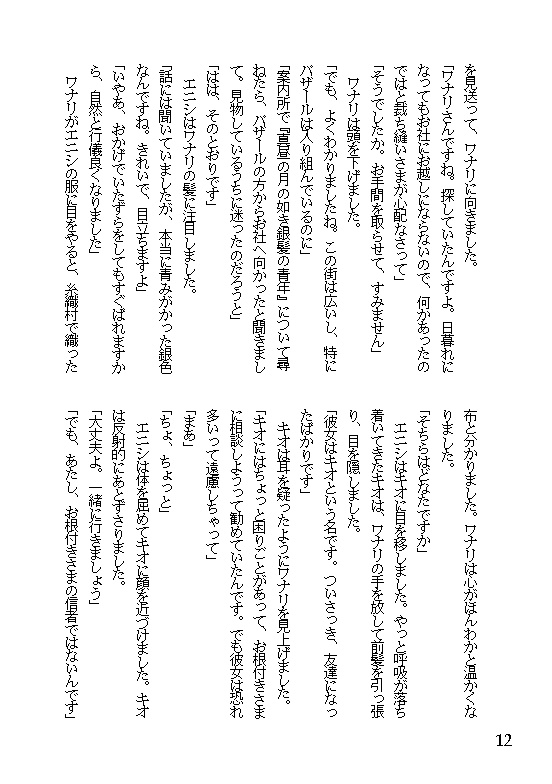 を見送って、ワナリに向きました。
「ワナリさんですね。探していたんですよ。日暮れに
なってもお社にお越しにならないので、何があったの
ではと裁ち縫いさまが心配なさって」
「そうでしたか。お手間を取らせて、すみません」
ワナリは頭を下げました。
「でも、よくわかりましたね。この街は広いし、特に
バザールは入り組んでいるのに」
「案内所で『真昼の月の如き銀髪の青年』について尋
ねたら、バザールの方からお社へ向かったと聞きまし
て。見物しているうちに迷ったのだろうと」
「はは、そのとおりです」
エニシはワナリの髪に注目しました。
「話には聞いていましたが、本当に青みがかった銀色
なんですね。きれいで、目立ちますよ」
「いやあ、おかげでいたずらをしてもすぐばれますか
ら、自然と行儀良くなりました」
ワナリがエニシの服に目をやると、糸織村で織った
布と分かりました。ワナリは心がほんわかと温かくな
りました。
「そちらはどなたですか」
エニシはキオに目を移しました。やっと呼吸が落ち
着いてきたキオは、ワナリの手を放して前髪を引っ張
り、目を隠しました。
「彼女はキオという名です。ついさっき、友達になっ
たばかりです」
キオは耳を疑ったようにワナリを見上げました。
「キオにはちょっと困りごとがあって、お根付きさま
に相談しようって勧めていたんです。でも彼女は恐れ
多いって遠慮しちゃって」
「まあ」
「ちょ、ちょっと」
エニシは体を屈めてキオに顔を近づけました。キオ
は反射的にあとずさりました。
「大丈夫よ。一緒に行きましょう」
「でも、あたし、お根付きさまの信者ではないんです」
12